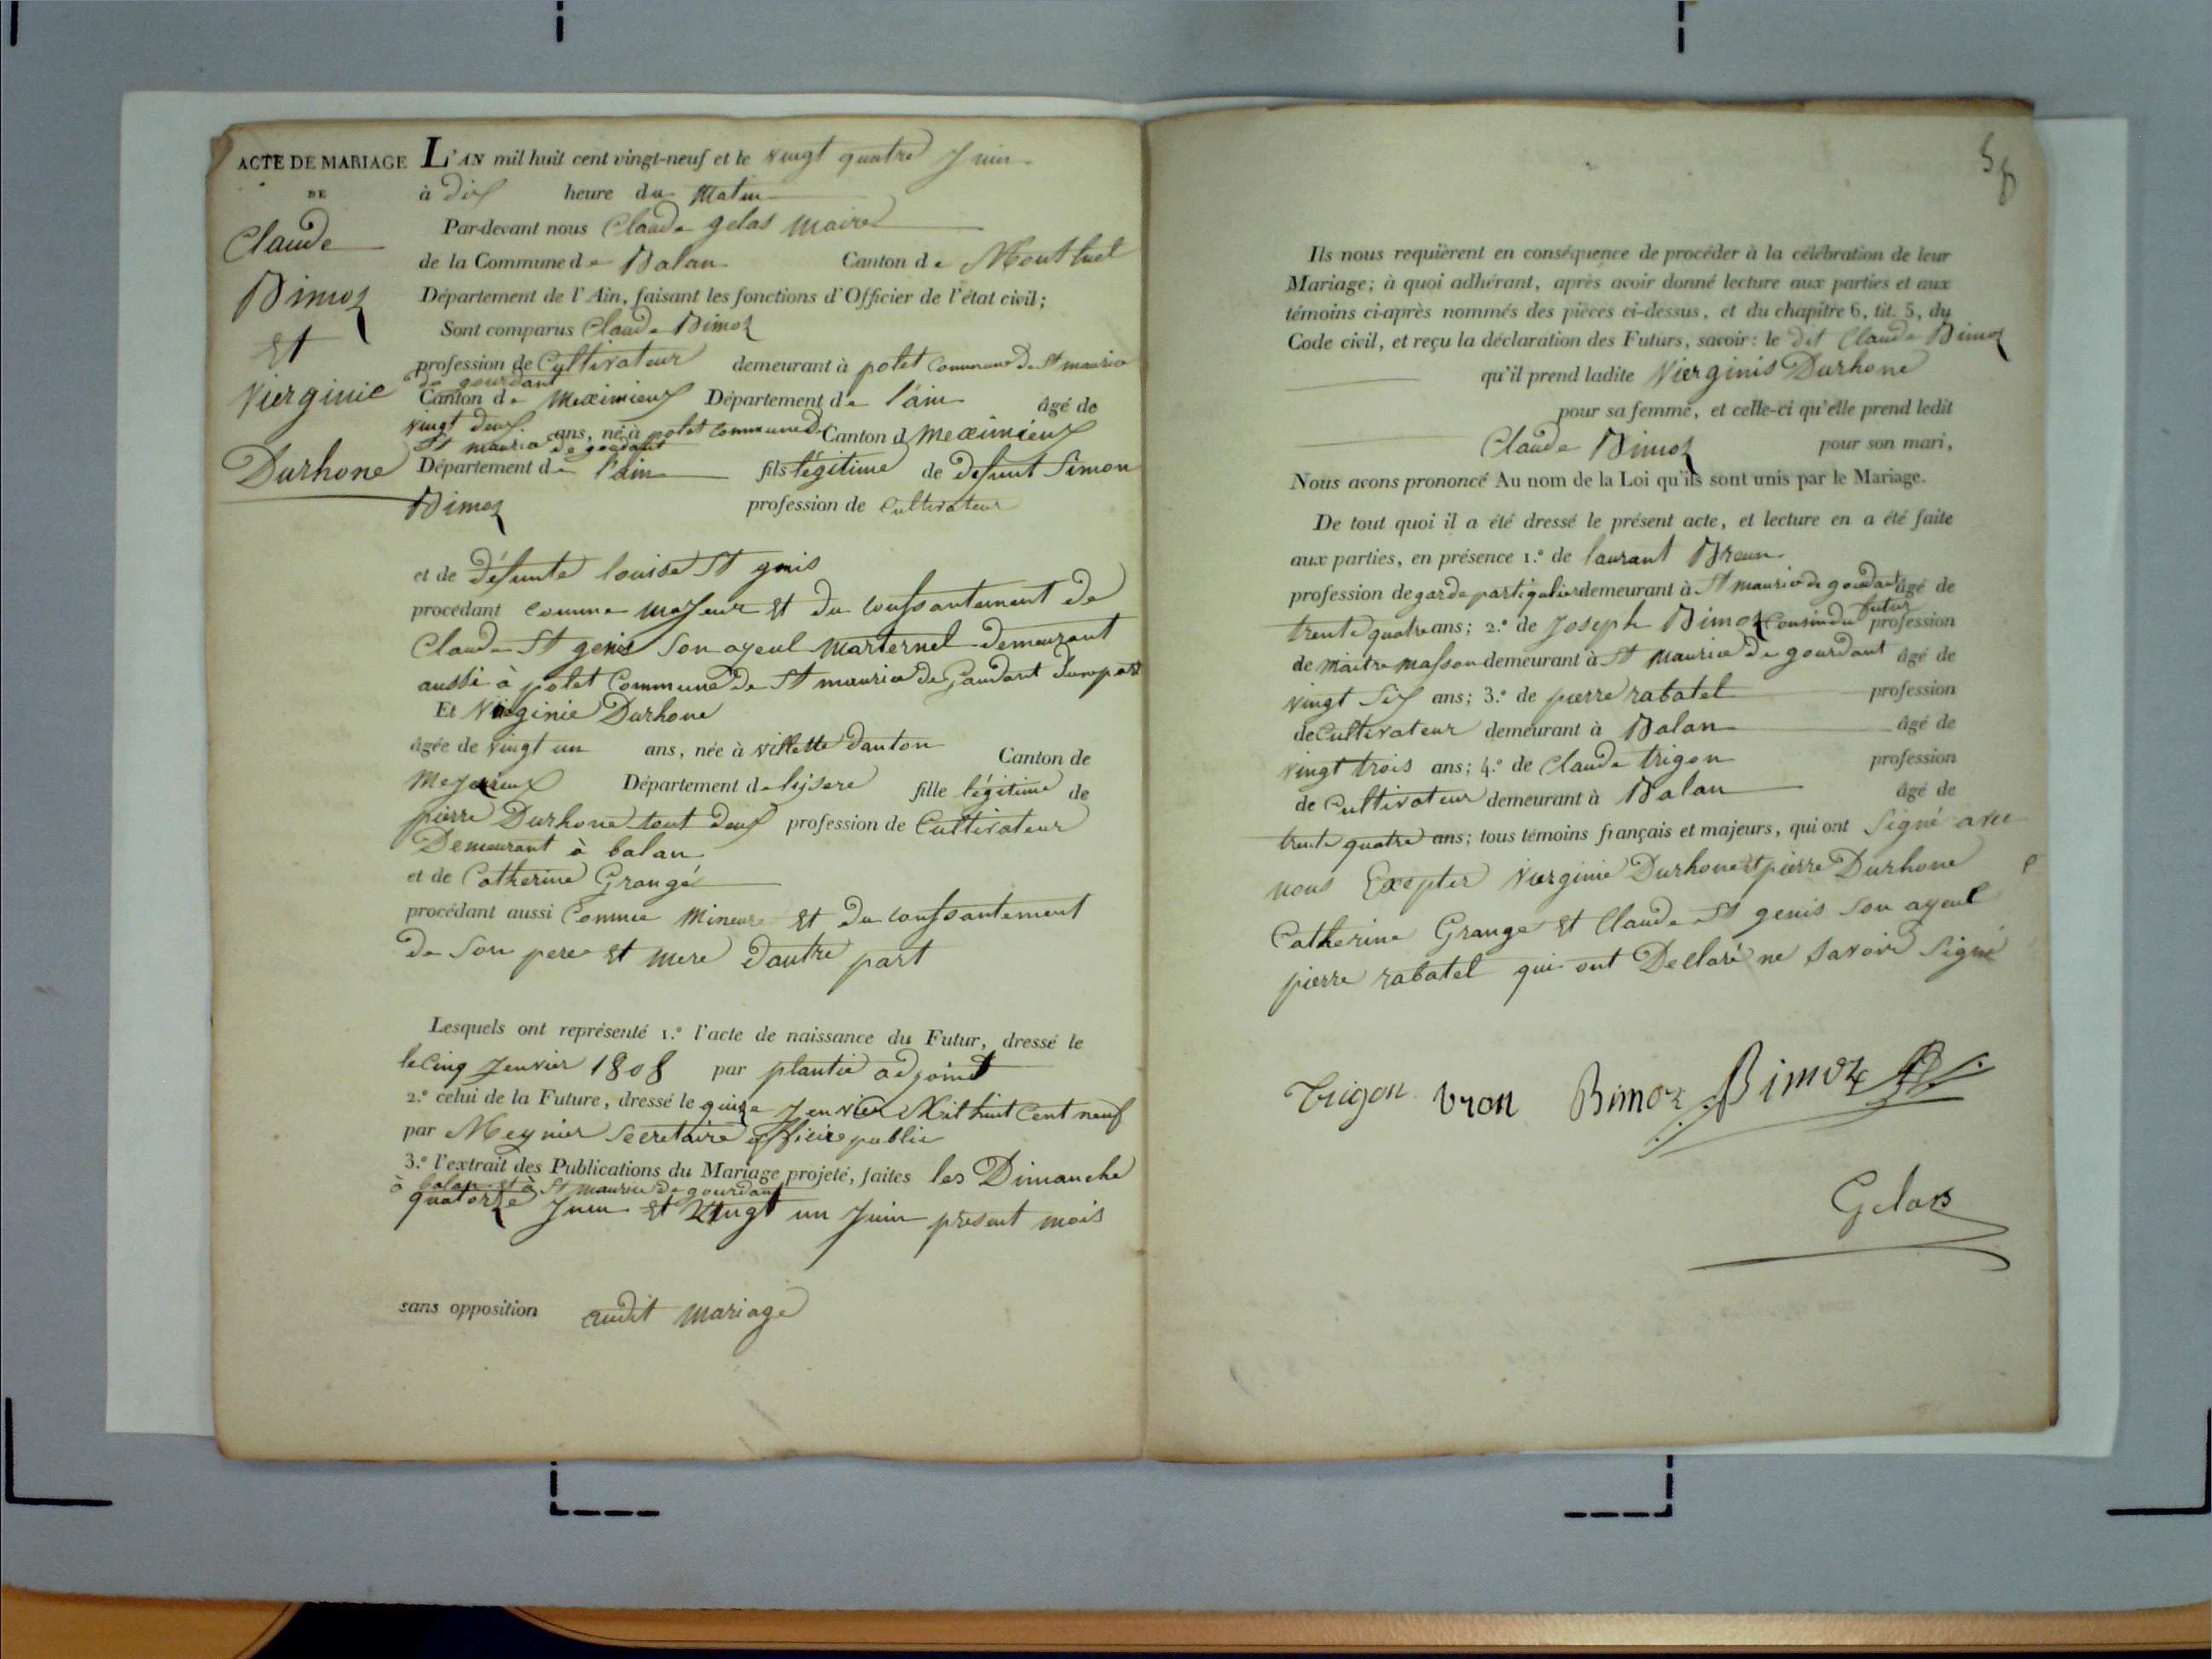 ACTE DE MARIAGE
DE
Claude
Bimoz
Et
Vierginie
Durhone
L'AN mil huit cent vingt-neuf et le vingt quatre Juin
à dix heure du Matin
Par-devant nous Claude gelas maire
de la Commune de Balan Canton de Montluel
Département de l'Ain, faisant les fonctions d'Officier de l'état civil;
Sont comparus Claude Bimoz
profession de Cultivateur demeurant à polet Commune De St maurice
de gourdant
Canton de Meximieux Département de l'ain âgé de
vingt deux ans, né à polet commune de Canton d Meximieux
St maurice de gourdant
Département de l'ain fils légitime de defunt Simon
Bimoz profession de Cultivateur
et de Défunte louise St genis
procédant comme majeur et du consantement de
Claude St genis Son ayeul marternel demeurant
aussi à polet Commune de St maurice de Gaudant dunepart
Et Virginie Durhone
âgée de vingt un ans, née à villette danton Canton de
Meyzieux Département de lizere fille légitime de
pierre Durhone tout deux profession de Cultivateur
Demeurant à balan
et de Catherine Grangé
procédant aussi Comme Mineure et du consantement
de Son pere et mere dautre part
Lesquels ont représenté 1.º l'acte de naissance du Futur, dressé le
le Cinq Jenvier 1808 par plantie adjoint
2.º celui de la Future, dressé le quinze Jenvier Mil huit Cent neuf
par Meynier Secretaire officier public
3.º l'extrait des Publications du Mariage projeté, faites les Dimanche
à balan et à St maurice de gourdant
quatorze Juin et vingt un Juin présent mois
sans opposition audit mariage
58
Ils nous requièrent en conséquence de procéder à la célébration de leur
Mariage; à quoi adhérant, après avoir donné lecture aux parties et aux
témoins ci-après nommés des pièces ci-dessus, et du chapitre 6, tit. 5, du
Code civil, et reçu la déclaration des Futurs, savoir: le dit Claude Bimoz
qu'il prend ladite Vierginis Durhone
pour sa femme, et celle-ci qu'elle prend ledit
Claude Bimoz pour son mari,
Nous avons prononcé Au nom de la Loi qu'ils sont unis par le Mariage.
De tout quoi il a été dressé le présent acte, et lecture en a été faite
aux parties, en présence 1.º de laurant
profession de garde partiqulier demeurant à St maurice de gourdant âgé de
trente quatre ans; 2.º de Joseph Bimoz Cousin du futur profession
de maitre masson demeurant à St maurice de gourdant âgé de
vingt Six ans; 3.º de pierre rabatel profession
de Cultivateur demeurant à Balan âgé de
vingt trois ans; 4.º de Claude trigon profession
de Cultivateur demeurant à Balan âgé de
trente quatre ans; tous témoins français et majeurs, qui ont Signé avec
nous Exepter Vierginie Durhone et pierre Durhone
Catherine Grange et Claude St genis Son ayeul
pierre rabatel qui ont Declaré ne Savoir Signé
Trigon vron Bimoz Bimoz
Gelas